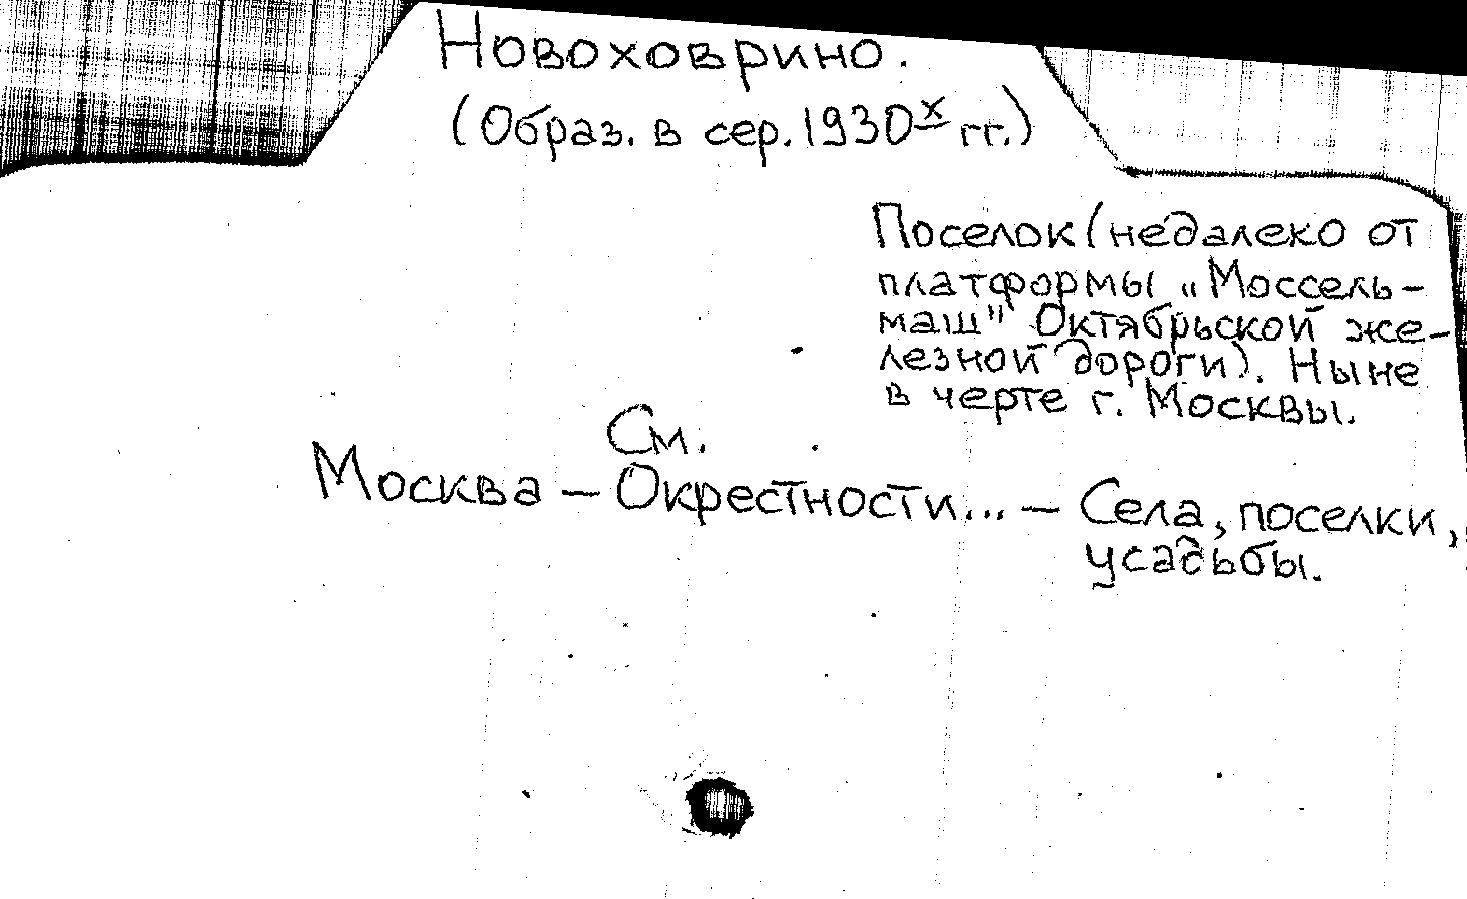 Новоховрино.
(Образ. в сер. 1930х гг.)
Поселок (недалеко от
платформы „Моссель-
маш" Октябрьской же-
лезной дороги). Ныне
в черте г. Москвы.
См.
Москва – Окрестности... – Села, поселки,
усадьбы.